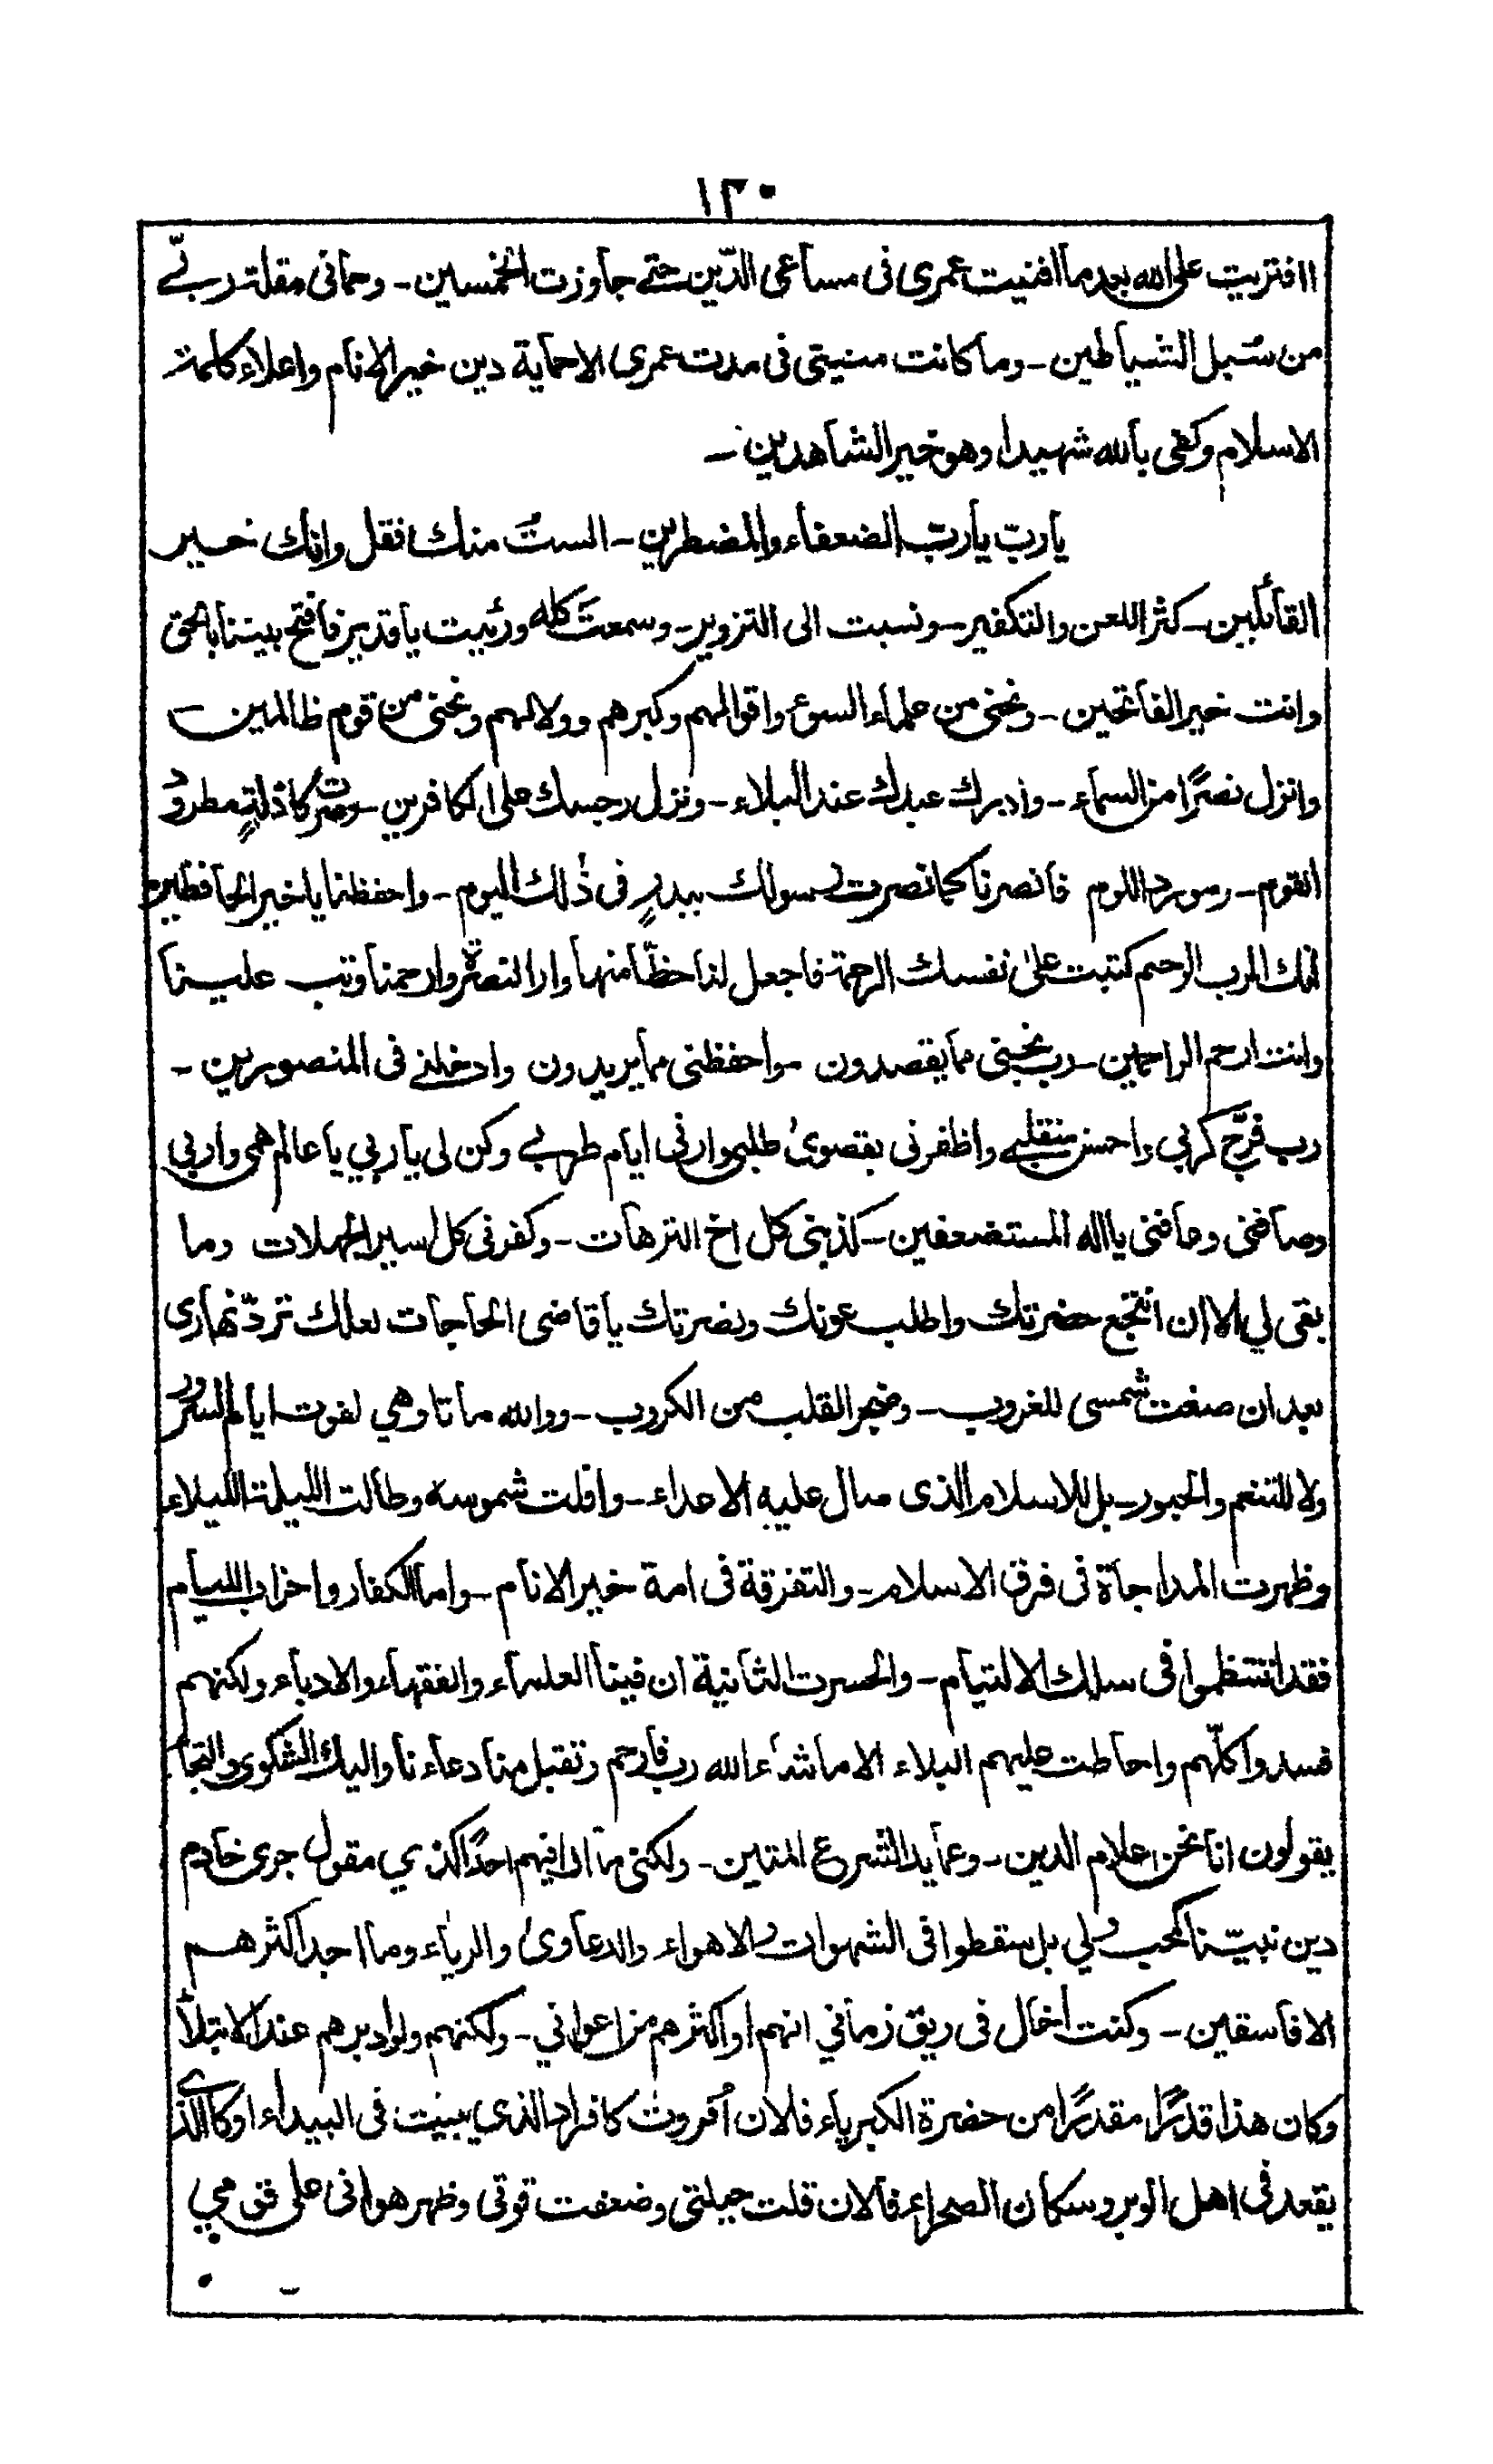 ١٢٠
اافتريت على الله بعد ما افنيت عمرى فى مساعى الدّين حتے جاوزت الخمسين - وحمانى مقلة ربّے
من سُبل الشياطين - وما كانت منيتى فى مدت عمرى الا حماية دين خير الانام واعلاء كلمة
الاسلام وكفى بالله شهيدا وهو خير الشاهدين -
يا ربّ يا ربّ الضعفاء والمضطرين - الستُ منك فقل وانك خير
القائلين - كثر اللعن والتكفير - ونسبت الى التزوير - وسمعتَ كله ورئيت يا قدير فافتح بيننا بالحق
وانت خير الفاتحين - ونجنى من علماء السوء واقوالهم وكبرهم وولالهم ونجنى من قوم ظالمين
وانزل نصرًا من السماء - وادرك عبدك عند البلاء - ونزل رجسك على الكافرين - وصرت كاذلةٍ مطرود
القوم - ومورد اللوم فانصرنا كما نصرت رسولك ببدرٍ فى ذٰلك اليوم - واحفظنا يا خير الحافظين
انك الرب الرحيم كتبت علىٰ نفسك الرحمة فاجعل لنا حظّا منها وارا النصرة وارحمنا وتب علينا
وانت ارحم الراحمين - رب نجنى مما يقصدون - واحفظنى مما يريدون وادخلنے فى المنصورين -
رب فرّج كربي واحسن منقلبے واظفرنى بقصوىٰ طلبى وارنى ايام طربے وكن لى يا ربي يا عالم همى واربي
وصافنى وعافنى يا اله المستضعفين - كذبنى كل اخ الترهات - وكفرنى كل اسير الجهلات وما
بقى لي الا ان انتجع حضرتك واطلب عونك ونصرتك يا قاضى الحاجات لعلك تردّ نهارى
بعد ان صغت شمسى للغروب - وضجر القلب من الكروب - ووالله ما تاوهي لفوت ايام السرور
ولا للتنعم والحبور - بل للاسلام الذى صال عليه الاعداء - وافلت شموسه وطالت الليلة الليلاء
وظهرت المداجاة فى فرق الاسلام - والتفرقة فى امة خير الانام - واما الكفار واحزاب الليام
فقد انتظموا فى سلك الالتيام - والحسرت الثانية ان فينا العلماء والفقهاء والادباء ولكنهم
فسدوا كلّهم واحاطت عليهم البلاء الا ما شاء الله رب فارحم وتقبل منا دعاءنا واليك الشكوى والتجا
يقولون انا نحن اعلام الدين - وعمايد الشرع المتين - ولكنى ما ارا فيهم احدًا كذي مقول جرى خادم
دين نبيّنا كمحب ولي بل سقطوا فى الشهوات والاهواء والدعاوىٰ والرياء وما اجد اكثرهم
الا فاسقين - وكنت اخال فى ريق زماني انهم او اكثرهم من اعواني - ولكنهم ولوا دبرهم عند الابتلاء
وكان هذا قدرًا مقدرًا من حضرة الكبرياء فالان اُفردت كافراد الذي يبيت فى البيداء او كالذى
يقعد فى اهل الوبر وسكان الصحراء فالان قلت حيلتى وضعفت قوتى وظهر هوانى على قومي